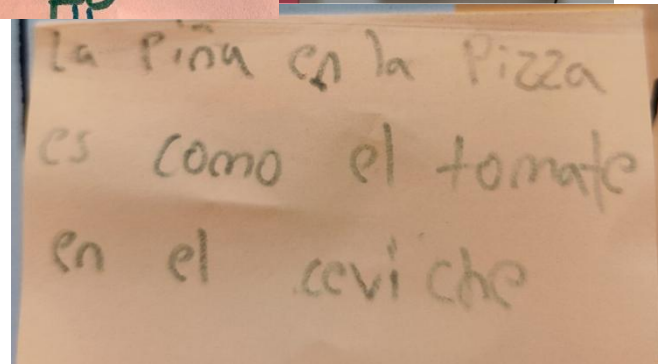 la Piña en la Pizza
es como el tomate
en el ceviche